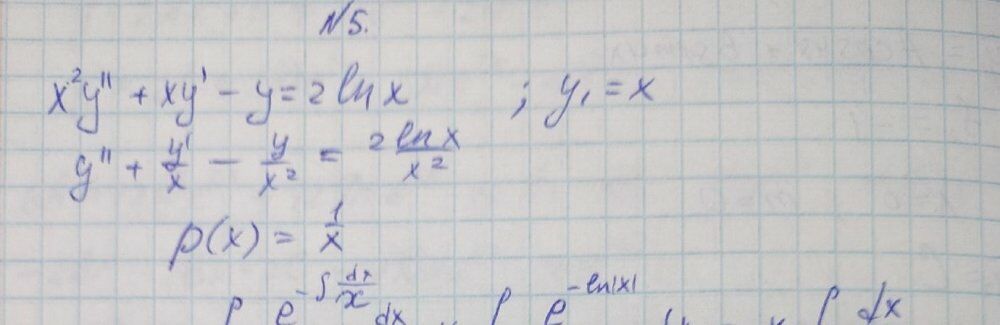 N5.
x²y'' + xy' - y = 2 ln x ; y₁ = x
y'' + y'/x - y/x² = 2 ln x/x²
p(x) = 1/x
∫ e^(-∫ dx/x) dx ∫ e^(-ln|x|) ∫ dx